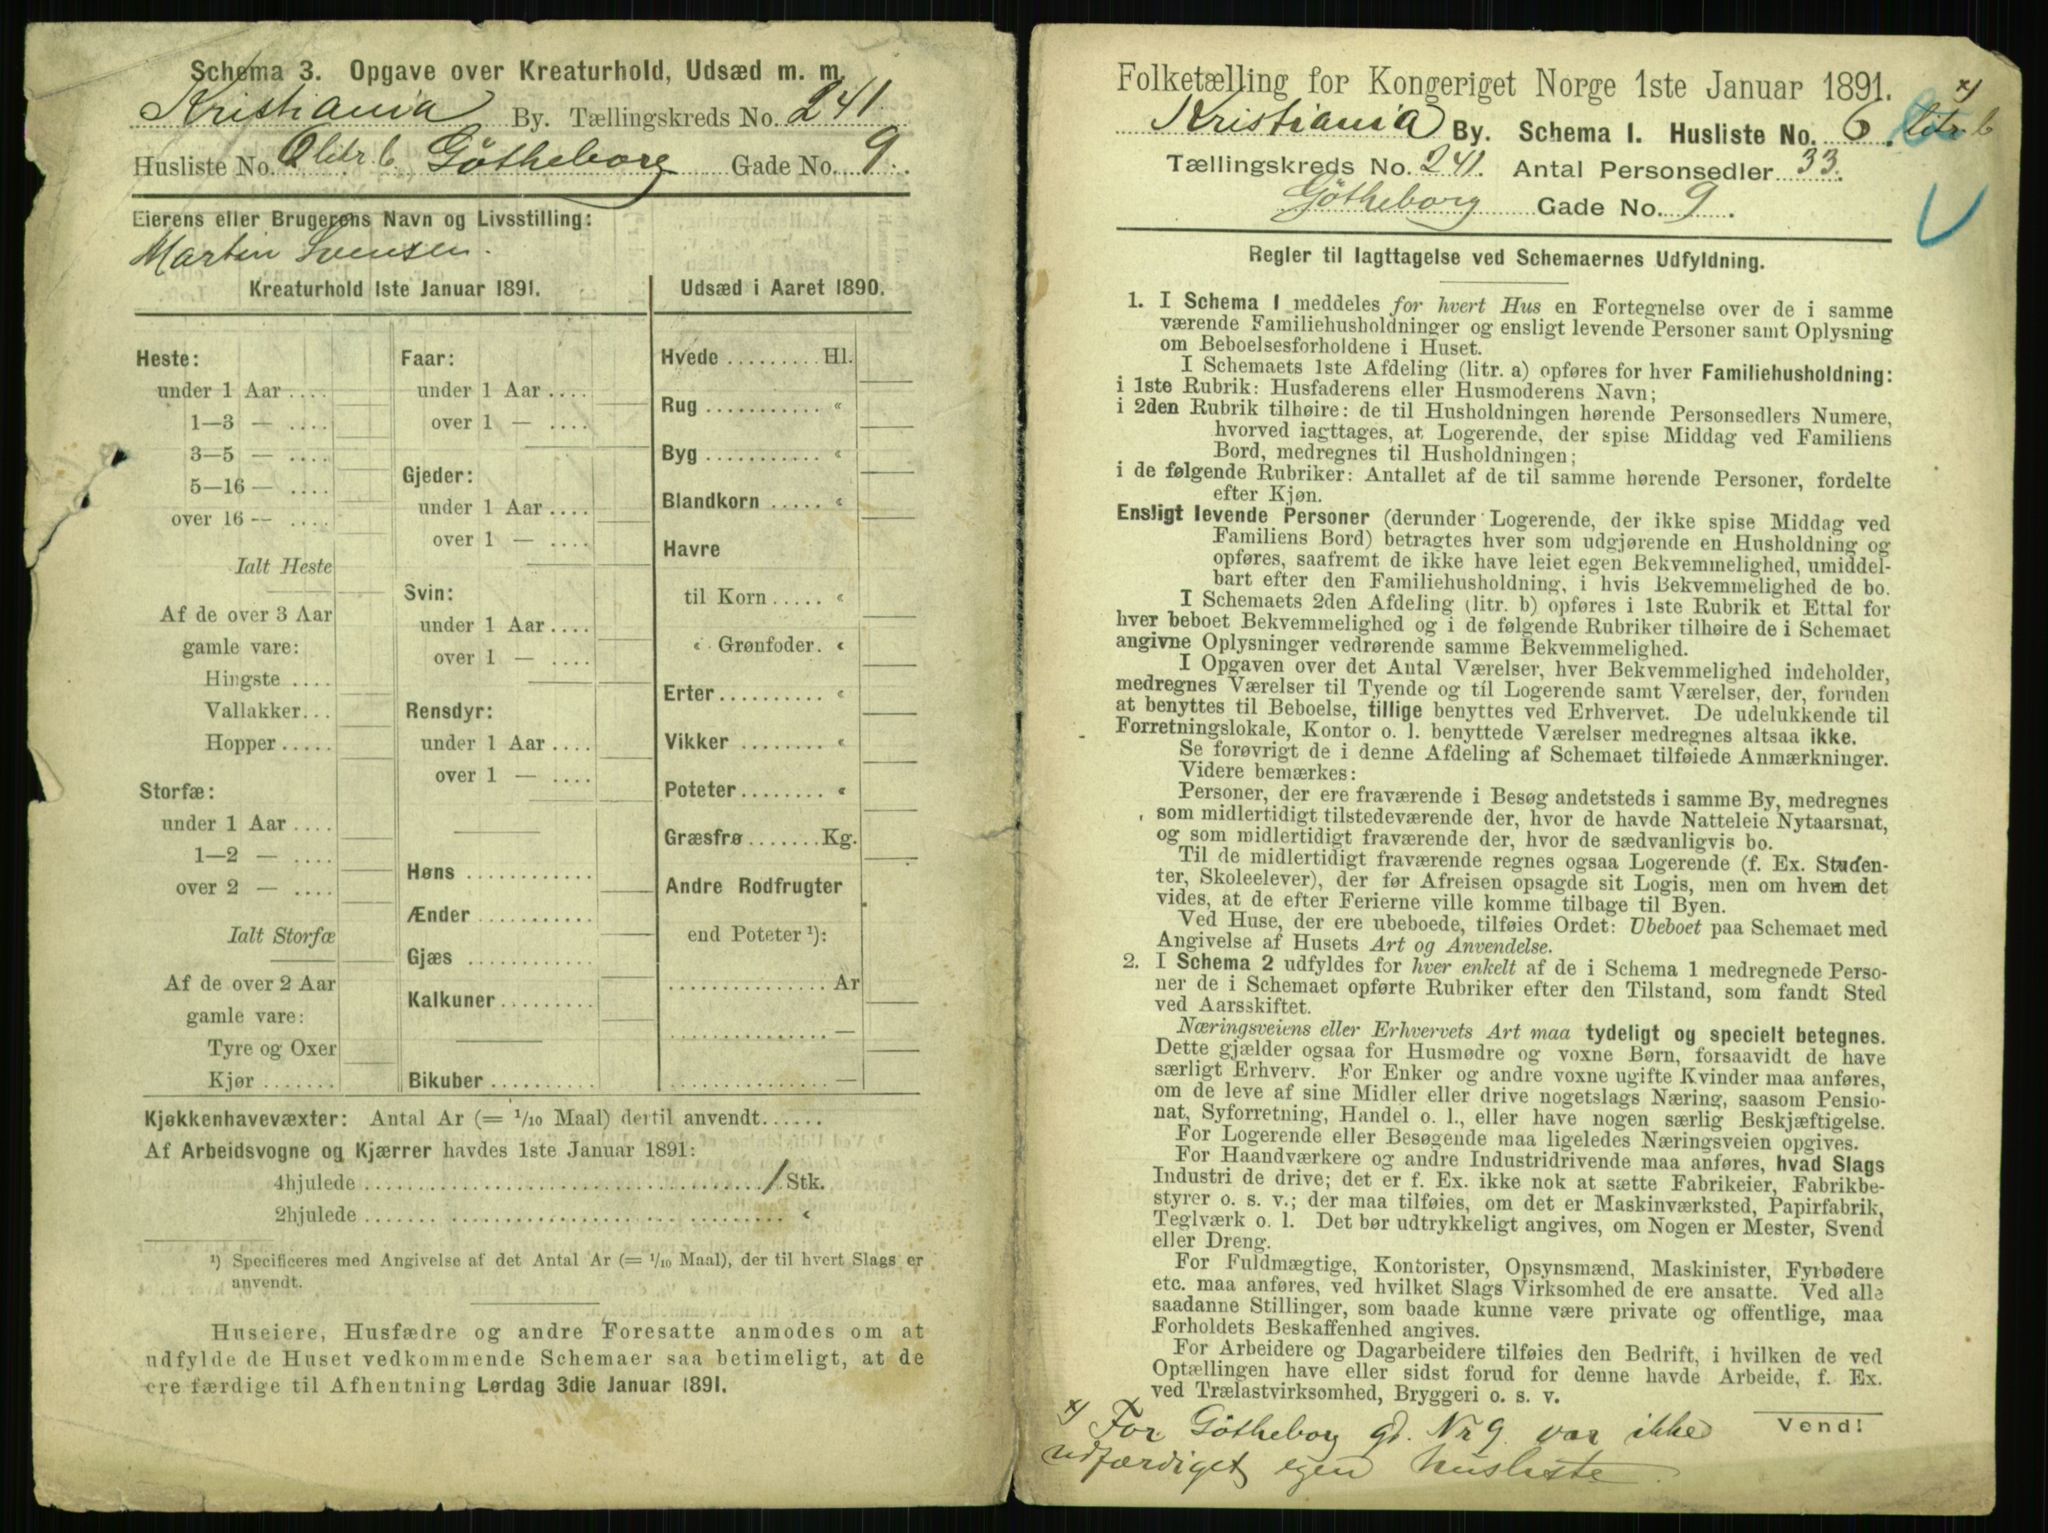 Schema 3. Opgave over Kreaturhold, Udsæd m. m.
Kristiania By. Tællingskreds No. 241.
Husliste No. 6 litr b Götheborg Gade No. 9.
Eierens eller Brugerens Navn og Livsstilling:
Martin Svensen.
Kreaturhold 1ste Januar 1891.
Heste:
under 1 Aar ....
1—3 — ....
3—5 — ....
5—16 — ....
over 16 — ....
Ialt Heste
Af de over 3 Aar
gamle vare:
Hingste ....
Vallakker...
Hopper.....
Storfæ:
under 1 Aar ....
1—2 — ....
over 2 — ....
Ialt Storfæ
Af de over 2 Aar
gamle vare:
Tyre og Oxer
Kjør .......
Faar:
under 1 Aar ....
over 1 — ....
Gjeder:
under 1 Aar ....
over 1 — ....
Svin:
under 1 Aar ....
over 1 — ....
Rensdyr:
under 1 Aar ....
over 1 — ....
Høns ............
Ænder ...........
Gjæs ............
Kalkuner .........
Bikuber ..........
Udsæd i Aaret 1890.
Hvede ......... Hl.
Rug ........... «
Byg ........... «
Blandkorn ..... «
Havre
til Korn ..... «
« Grønfoder. «
Erter .......... «
Vikker ......... «
Poteter ........ «
Græsfrø ....... Kg.
Andre Rodfrugter
end Poteter ¹):
............... Ar
............... —
............... —
Kjøkkenhavevæxter: Antal Ar (= 1/10 Maal) dertil anvendt......
Af Arbeidsvogne og Kjærrer havdes 1ste Januar 1891:
4hjulede ........................................ 1 Stk.
2hjulede ........................................ «
¹) Specificeres med Angivelse af det Antal Ar (= 1/10 Maal), der til hvert Slags er
anvendt.
Huseiere, Husfædre og andre Foresatte anmodes om at
udfylde de Huset vedkommende Schemaer saa betimeligt, at de
ere færdige til Afhentning Lørdag 3die Januar 1891.
Folketælling for Kongeriget Norge 1ste Januar 1891.
x)
Kristiania By. Schema I. Husliste No. 6. litr b
Tællingskreds No. 241. Antal Personsedler 33.
Götheborg Gade No. 9.
Regler til Iagttagelse ved Schemaernes Udfyldning.
1. I Schema 1 meddeles for hvert Hus en Fortegnelse over de i samme
værende Familiehusholdninger og ensligt levende Personer samt Oplysning
om Beboelsesforholdene i Huset.
I Schemaets 1ste Afdeling (litr. a) opføres for hver Familiehusholdning:
i 1ste Rubrik: Husfaderens eller Husmoderens Navn;
i 2den Rubrik tilhøire: de til Husholdningen hørende Personsedlers Numere,
hvorved iagttages, at Logerende, der spise Middag ved Familiens
Bord, medregnes til Husholdningen;
i de følgende Rubriker: Antallet af de til samme hørende Personer, fordelte
efter Kjøn.
Ensligt levende Personer (derunder Logerende, der ikke spise Middag ved
Familiens Bord) betragtes hver som udgjørende en Husholdning og
opføres, saafremt de ikke have leiet egen Bekvemmelighed, umiddel-
bart efter den Familiehusholdning, i hvis Bekvemmelighed de bo.
I Schemaets 2den Afdeling (litr. b) opføres i 1ste Rubrik et Ettal for
hver beboet Bekvemmelighed og i de følgende Rubriker tilhøire de i Schemaet
angivne Oplysninger vedrørende samme Bekvemmelighed.
I Opgaven over det Antal Værelser, hver Bekvemmelighed indeholder,
medregnes Værelser til Tyende og til Logerende samt Værelser, der, foruden
at benyttes til Beboelse, tillige benyttes ved Erhvervet. De udelukkende til
Forretningslokale, Kontor o. l. benyttede Værelser medregnes altsaa ikke.
Se forøvrigt de i denne Afdeling af Schemaet tilføiede Anmærkninger.
Videre bemærkes:
Personer, der ere fraværende i Besøg andetsteds i samme By, medregnes
som midlertidigt tilstedeværende der, hvor de havde Natteleie Nytaarsnat,
og som midlertidigt fraværende der, hvor de sædvanligvis bo.
Til de midlertidigt fraværende regnes ogsaa Logerende (f. Ex. Studen-
ter, Skoleelever), der før Afreisen opsagde sit Logis, men om hvem det
vides, at de efter Ferierne ville komme tilbage til Byen.
Ved Huse, der ere ubeboede, tilføies Ordet: Ubeboet paa Schemaet med
Angivelse af Husets Art og Anvendelse.
2. I Schema 2 udfyldes for hver enkelt af de i Schema 1 medregnede Perso-
ner de i Schemaet opførte Rubriker efter den Tilstand, som fandt Sted
ved Aarsskiftet.
Næringsveiens eller Erhvervets Art maa tydeligt og specielt betegnes.
Dette gjælder ogsaa for Husmødre og voxne Børn, forsaavidt de have
særligt Erhverv. For Enker og andre voxne ugifte Kvinder maa anføres,
om de leve af sine Midler eller drive nogetslags Næring, saasom Pensio-
nat, Syforretning, Handel o. l., eller have nogen særlig Beskjæftigelse.
For Logerende eller Besøgende maa ligeledes Næringsveien opgives.
For Haandværkere og andre Industridrivende maa anføres, hvad Slags
Industri de drive; det er f. Ex. ikke nok at sætte Fabrikeier, Fabrikbe-
styrer o. s. v.; der maa tilføies, om det er Maskinværksted, Papirfabrik,
Teglværk o. l. Det bør udtrykkeligt angives, om Nogen er Mester, Svend
eller Dreng.
For Fuldmægtige, Kontorister, Opsynsmænd, Maskinister, Fyrbødere
etc. maa anføres, ved hvilket Slags Virksomhed de ere ansatte. Ved alle
saadanne Stillinger, som baade kunne være private og offentlige, maa
Forholdets Beskaffenhed angives.
For Arbeidere og Dagarbeidere tilføies den Bedrift, i hvilken de ved
Optællingen have eller sidst forud for denne havde Arbeide, f. Ex.
ved Trælastvirksomhed, Bryggeri o. s. v.
Vend!
x) For Götheborg gd. Nr 9 var ikke
udfærdiget egen Husliste.